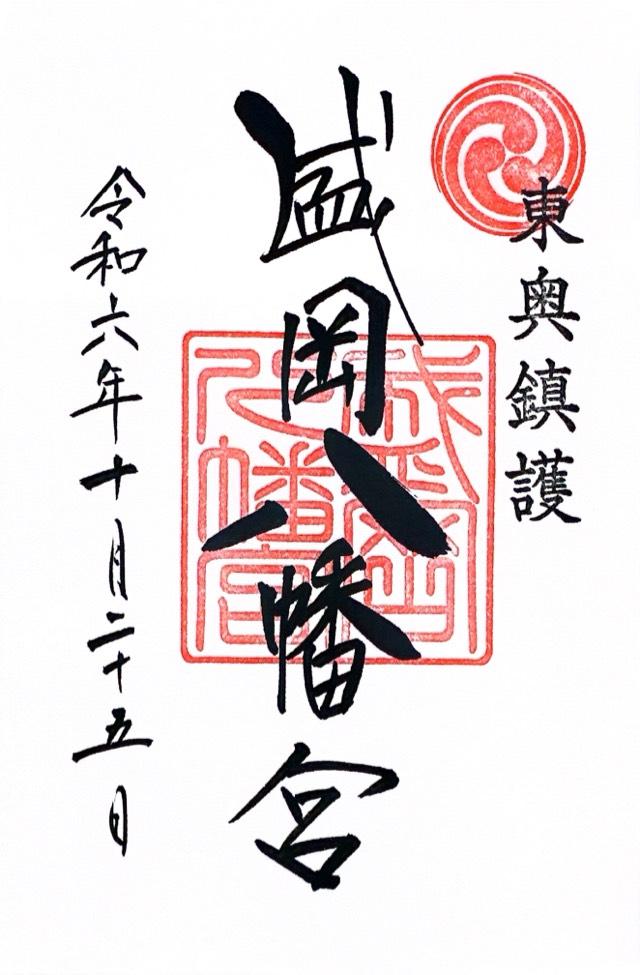 東奥鎮護
盛岡八幡宮
盛岡八幡宮
令和六年十月二十五日